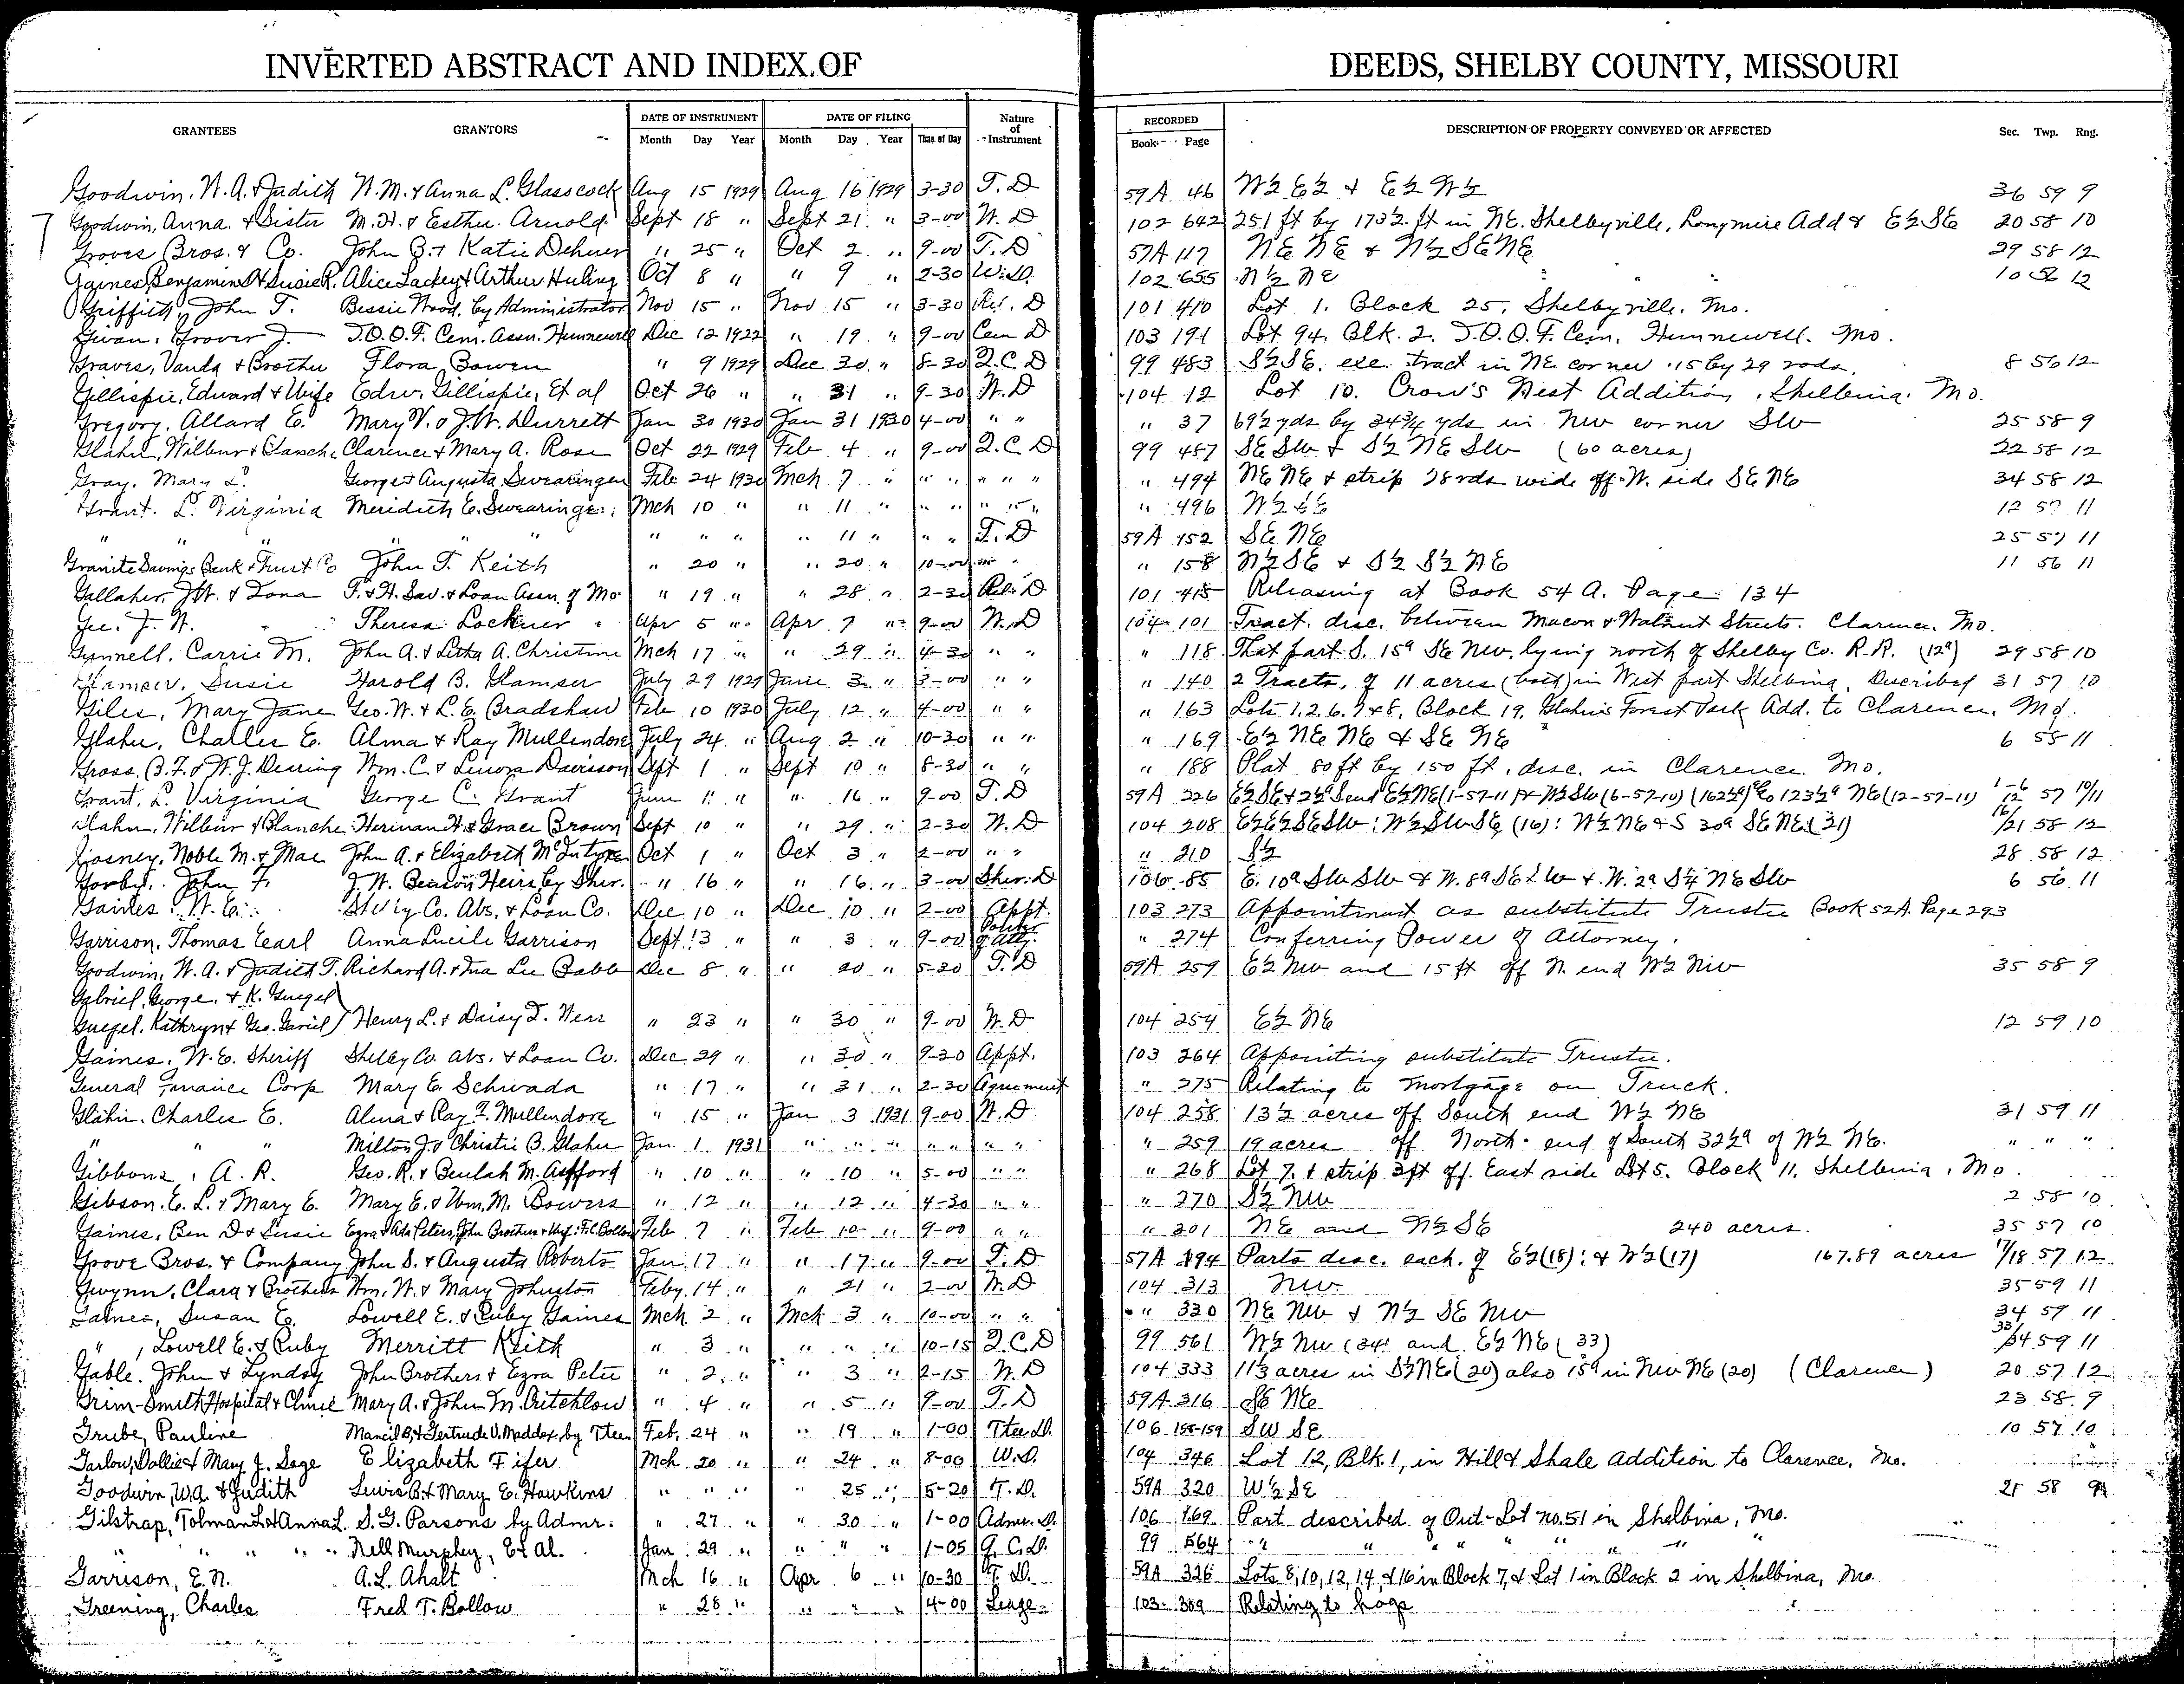 INVERTED ABSTRACT AND INDEX OF DEEDS, SHELBY COUNTY, MISSOURI
GRANTEES GRANTORS DATE OF INSTRUMENT Month Day Year DATE OF FILING Month Day Year Time of Day Nature of Instrument RECORDED Book Page DESCRIPTION OF PROPERTY CONVEYED OR AFFECTED Sec. Twp. Rng.
Goodwin, W. A. & Judith W. M. & Anna L. Glasscock Aug 15 1929 Aug 16 1929 3-30 T. D 59A 46 W½ E½ & E½ W½ 36 59 9
Goodwin, Anna. & Sister M. H. & Esther Arnold Sept 18 " Sept 21 " 3-00 W. D 102 642 251 ft by 173½ ft in NE. Shelbyville, Longmire Add & E½ SE 20 58 10
Groves Bros. & Co. John B. & Katie Dehner " 25 " Oct 2 " 9-00 T. D 57A 117 NE NE & N½ SE NE 29 58 12
Gaines, Benjamin D & Susie R. Alice Lackey & Arthur Huling Oct 8 " " 9 " 2-30 W. D. 102 655 N½ NE 10 56 12
Griffith, John T. Bessie Wood, by Administrator Nov 15 " Nov 15 " 3-30 Rel. D 101 410 Lot 1. Block 25, Shelbyville, Mo.
Givan, Grover J. I.O.O.F. Cem. Assn. Hunnewell Dec 12 1922 " 19 " 9-00 Cem D 103 191 Lot 94. Blk. 2. I.O.O.F. Cem. Hunnewell. Mo.
Graves, Vanda & Brother Flora Bowen " 9 1929 Dec 20 " 8-30 Q. C. D 99 483 S½ SE, exc. tract in NE corner 15 by 29 rods. 8 56 12
Gillispie, Edward & Wife Edw. Gillispie, Et al Oct 26 " " 31 " 9-30 W. D 104 12 Lot 10. Crow's Nest Addition, Shelbina. Mo.
Gregory, Allard E. Mary V. & J. W. Durrett Jan 30 1930 Jan 31 1930 4-00 " " " 37 69½ yds by 34¾ yds in NW corner SW 25 58 9
Glahn, Wilbur & Blanche Clarence & Mary A. Rose Oct 22 1929 Feb 4 " 9-00 Q. C. D 99 487 SE SW & S½ NE SW (60 acres) 22 58 12
Gray, Mary L. George & Augusta Swearingen Feb 24 1930 Mch 7 " " " " " " " 494 NE NE & strip 28 rds wide off W. side SE NE 34 58 12
Grant. L. Virginia Meridith E. Swearingen Mch 10 " " 11 " " " " " " " 496 W½ SE 12 57 11
" " " " " " " " " " " 11 " " " T. D 59A 152 SE NE 25 57 11
Granite Savings Bank & Trust Co John T. Keith " 20 " " 20 " 10-00 " " " 158 N½ SE & S½ S½ NE 11 56 11
Gallaher, J. W. & Zona F. & H. Sav. & Loan Assn. of Mo " 19 " " 28 " 2-30 Rel. D 101 415 Releasing at Book 54 A. Page 134
Gee. J. W. Theresa Lockner Apr 5 " Apr 7 " 9-00 W. D 104 101 Tract. disc. between Macon & Walnut Streets. Clarence. Mo.
Gunnell. Carrie M. John A. & Letha A. Christine Mch 17 " " 29 " 4-30 " " " 118 That part S. 15ª SE NW, lying north of Shelby Co. R. R. (12ª) 29 58 10
Glamser, Susie Harold B. Glamser July 29 1929 June 3 " 3-00 " " " 140 2 Tracts, of 11 acres (both) in West part Shelbina, Described 31 57 10
Giles, Mary Jane Geo. W. & L. E. Bradshaw Feb 10 1930 July 12 " 4-00 " " " 163 Lots 1, 2, 6, 7 & 8, Block 19, Glahn's Forest Park Add. to Clarence, Mo.
Glahn, Charles E. Alma & Ray Mullendore July 24 " Aug 2 " 10-30 " " " 169 E½ NE NE & SE NE 6 58 11
Gross, B. F. & W. J. Dearing Wm. C. & Lenora Davisson Sept 1 " Sept 10 " 8-30 " " " 188 Plat 80 ft by 150 ft, disc. in Clarence Mo.
Grant. L. Virginia George C. Grant June 1 " " 16 " 9-00 T. D 59A 226 E½ SE & 2½ª S end E½ NE (1-57-11) & W½ SW (6-57-10) (162½ª) also 123½ª NE (12-57-11) 1-6 12 57 10/11
Glahn, Wilbur & Blanche Herman H. & Grace Brown Sept 10 " " 29 " 2-30 W. D 104 208 E½ E½ SE SW: W½ SW SE (16): W½ NE & S 30ª SE NE (21) 16/21 58 12
Gosney, Noble M. & Mae John A. & Elizabeth McIntyre Oct 1 " Oct 3 " 2-00 " " " 210 S½ 28 58 12
Gorby, John F. J. W. Benson Heirs, by Sher. " 16 " " 16 " 3-00 Sher. D 106 85 E. 10ª SW SW & W. 8ª SE SW & W. 2ª S¼ NE SW 6 56 11
Gaines, W. E. Shelby Co. Abs. & Loan Co. Dec 10 " Dec 10 " 2-00 Appt. 103 273 Appointment as substitute Trustee Book 52A. Page 293
Garrison, Thomas Earl Anna Lucile Garrison Sept 13 " " 3 " 9-00 Power of Atty. " 274 Conferring Power of Attorney.
Goodwin, W. A. & Judith T. Richard A. & Ina Lee Babb Dec 8 " " 20 " 5-20 T. D 59A 259 E½ NW and 15 ft off N. end W½ NW 35 58 9
Gabriel, George, & K. Guegel
Guegel, Kathryn & Geo. Gabriel Henry L. & Daisy D. Near " 23 " " 30 " 9-00 W. D 104 254 E½ NE 12 59 10
Gaines, W. E. Sheriff Shelby Co. Abs. & Loan Co. Dec 29 " " 30 " 9-30 Appt. 103 264 Appointing substitute Trustee.
General Finance Corp Mary E. Schwada " 17 " " 31 " 2-30 Agreement " 275 Relating to mortgage on Truck.
Glahn. Charles E. Alma & Ray F. Mullendore " 15 " Jan 3 1931 9-00 W. D 104 258 13½ acres off South end W½ NE 31 59 11
" " " Milton J. & Christie B. Glahn Jan 1 1931 " " " " " " " " 259 19 acres off North end of South 32½ª of W½ NE. " " "
Gibbons, A. R. Geo. R. & Beulah M. Ashford " 10 " " 10 " 5-00 " " " 268 Lot 7, & strip 3ft off East side Lot 5. Block 11. Shelbina, Mo.
Gibson. E. L. & Mary E. Mary E. & Wm. M. Bowers " 12 " " 12 " 4-30 " " " 270 S½ NW 2 58 10
Gaines, Ben D & Susie Ezra & Ada Peters, John Brothers & Wife: F. C. Bollow Feb 7 " Feb 10 " 9-00 " " " 301 NE and N½ SE 240 acres. 35 57 10
Grove Bros. & Company John S. & Augusta Roberts Jan. 17 " " 17 " 9-00 T. D 57A 194 Parts disc. each. of E½ (18): & W½ (17) 167.89 acres 17/18 57 12
Gwynn, Clara & Brothers Wm. W. & Mary Johnston Feby 14 " " 21 " 2-00 W. D 104 313 NW. 35 59 11
Gaines, Susan E. Lowell E. & Ruby Gaines Mch 2 " Mch 3 " 10-00 " " " 330 NE NW & N½ SE NW 34 59 11
" , Lowell E. & Ruby Merritt Keith " 3 " " " " 10-15 Q. C. D 99 561 W½ NW (34) and E½ NE (33) 33/34 59 11
Gable. John & Lyndsy John Brothers & Ezra Peter " 2 " " 3 " 2-15 W. D 104 333 11⅓ acres in S½ NE (20) also 15ª in NW NE (20) (Clarence) 20 57 12
Grim-Smith Hospital & Clinic Mary A. & John M. Critchlow " 4 " " 5 " 9-00 T. D 59A 316 SE NE 23 58 9
Grube, Pauline Mancil B. & Gertrude V. Maddox, by Ttee. Feb. 24 " " 19 " 1-00 Ttee D. 106 158-159 SW SE 10 57 10
Garlow, Dollie & Mary J. Sage Elizabeth Fifer Mch 20 " " 24 " 8-00 W. D. 104 346 Lot 12, Blk. 1, in Hill & Shale Addition to Clarence, Mo.
Goodwin, W. A. & Judith Lewis B. & Mary E. Hawkins " " " " 25 " 5-20 T. D. 59A 320 W½ SE 21 58 9
Gilstrap, Tolman L. & Anna L. S. G. Parsons by Admr. " 27 " " 30 " 1-00 Admr. D. 106 169 Part described of Out-Lot No. 51 in Shelbina, Mo.
" " " " " Nell Murphey, Et Al. Jan. 29 " " " " 1-05 Q. C. D. 99 564 " " " " " " "
Garrison, E. N. A. L. Ahalt Mch 16 " Apr 6 " 10-30 T. D. 59A 326 Lots 8, 10, 12, 14, & 16 in Block 7, & Lot 1 in Block 2 in Shelbina, Mo.
Greening, Charles Fred T. Bollow " 28 " " " " 4-00 Lease 103 309 Relating to hogs